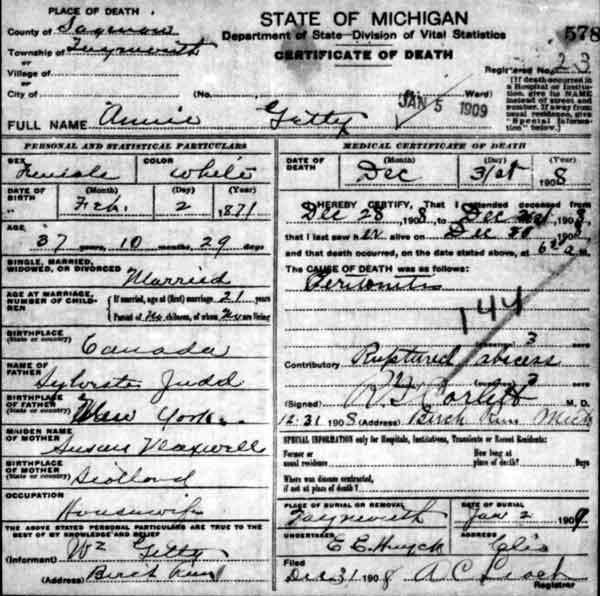 PLACE OF DEATH
County of Saginaw
Township of Taymouth
or
Village of
or
City of
STATE OF MICHIGAN
Department of State—Division of Vital Statistics
CERTIFICATE OF DEATH
578
Registered No. 23
(No. Ward)
[If death occurred in a Hospital or Institution, give its NAME instead of street and number. If away from usual residence, give "Special Information" below.]
JAN 5 1909
FULL NAME Annie Getty
PERSONAL AND STATISTICAL PARTICULARS
SEX Female
COLOR White
DATE OF BIRTH (Month) (Day) (Year)
Feb. 2 1871
AGE
37 years, 10 months, 29 days
SINGLE, MARRIED, WIDOWED, OR DIVORCED
Married
AGE AT MARRIAGE, NUMBER OF CHILDREN
If married, age at (first) marriage 21 years
Parent of No children, of whom No are living
BIRTHPLACE (State or country)
Canada
NAME OF FATHER
Sylvester Judd
BIRTHPLACE OF FATHER (State or country)
New York
MAIDEN NAME OF MOTHER
Susan Maxwell
BIRTHPLACE OF MOTHER (State or country)
Scotland
OCCUPATION
Housewife
THE ABOVE STATED PERSONAL PARTICULARS ARE TRUE TO THE BEST OF MY KNOWLEDGE AND BELIEF
(Informant) Wm Getty
(Address) Birch Run
MEDICAL CERTIFICATE OF DEATH
DATE OF DEATH (Month) (Day) (Year)
Dec 31st 1908
I HEREBY CERTIFY, That I attended deceased from
Dec 28 1908, to Dec 1908,
that I last saw her alive on Dec 30 1908,
and that death occurred, on the date stated above, at 6 a M.
The CAUSE OF DEATH was as follows:
Peritonitis
144
3
Contributory Ruptured abscess
(Signed) M. D.
12-31 1908 (Address) Birch Run Mich
SPECIAL INFORMATION only for Hospitals, Institutions, Transients or Recent Residents:
Former or usual residence
How long at place of death? Days
Where was disease contracted, if not at place of death?
PLACE OF BURIAL OR REMOVAL
Taymouth
DATE OF BURIAL
Jan 2 1909
UNDERTAKER
E E Huyck
ADDRESS
Clio
Filed
Dec 31 1908 A C Leach
Registrar